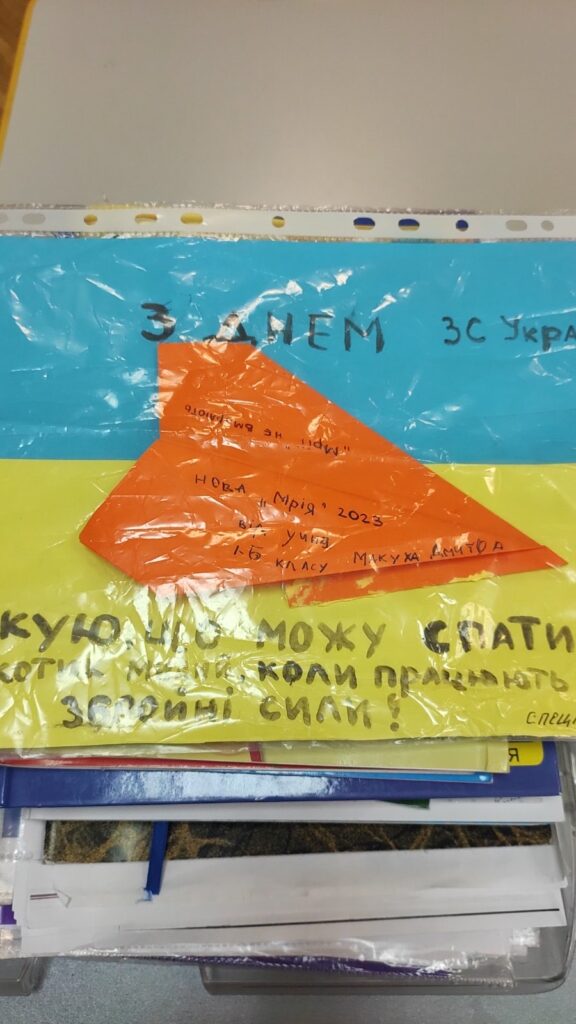 З ДНЕМ ЗС Укра
"Мрії" не вмирають
НОВА „Мрія" 2023
від учня
1-Б класу Макуха Дмитра
кую, що можу спати
котик малий, коли працюють
Збройні сили!
спеці
Я